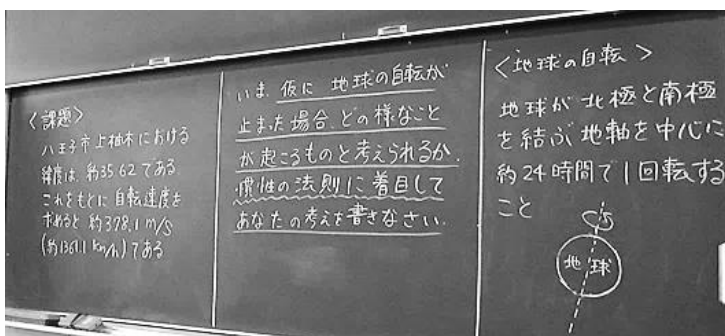 <課題>
八王子市上柚木における
緯度は、約35.62である
これをもとに自転速度を
求めると約378.1 m/s
(約1361.1 km/h)である
いま、仮に 地球の自転が
止まった場合、どの様なこと
が起こるものと考えられるか。
慣性の法則に着目して
あなたの考えを書きなさい。
<地球の自転>
地球が北極と南極
を結ぶ地軸を中心に
約24時間で1回転する
こと
地球